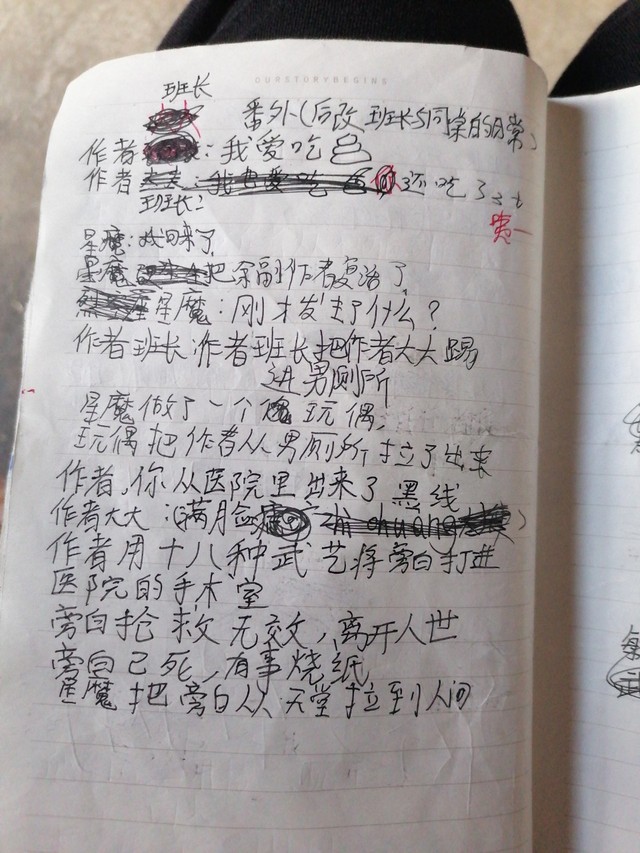 OURSTORYBEGINS
班长
番外(后改班长与同桌的日常)
作者:我爱吃
作者 还吃了
班长:
星魔:我回来了
星魔 把余副作者复活了
星魔:刚才发生了什么?
作者班长:作者班长把作者大大踢
进男厕所
星魔做了一个 玩偶,
玩偶把作者从男厕所拉了出来
作者,你从医院里出来了 黑线
作者大大:(满脸
作者用十八种武艺将旁白打进
医院的手术室
旁白抢救无效,离开人世
旁白已死,有事烧纸
星魔把旁白从天堂拉到人间